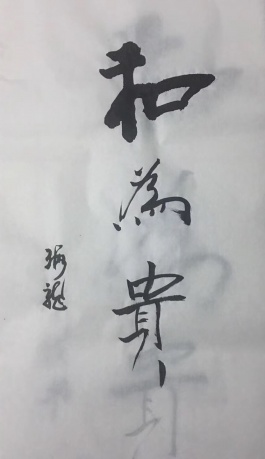 和為貴
張龍